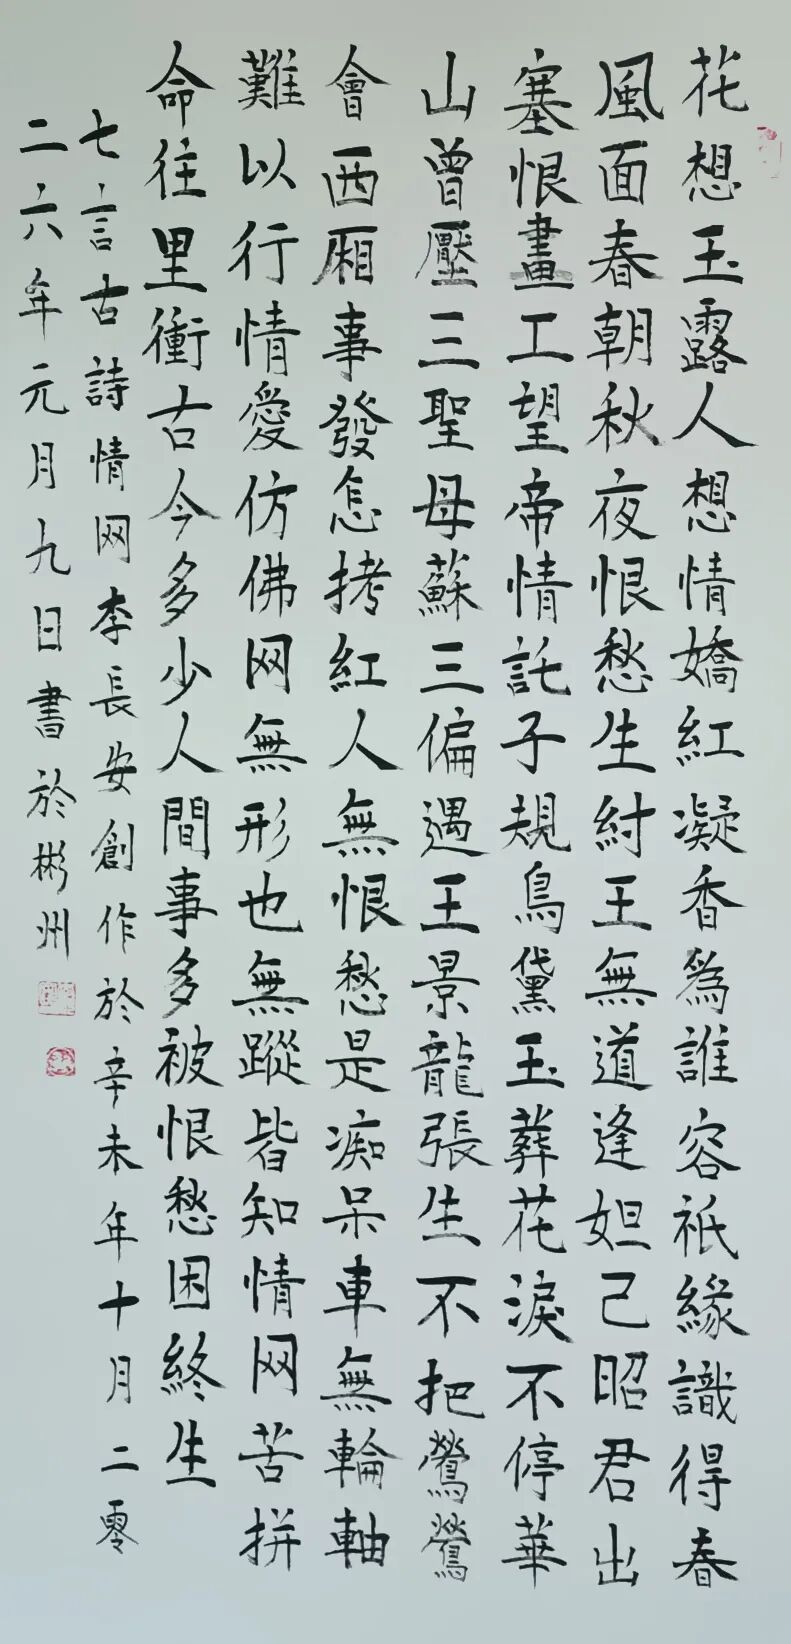 花想玉露人想情嬌紅凝香爲誰容祇緣識得春
風面春朝秋夜恨愁生紂王無道逢妲己昭君出
塞恨畫工望帝情託子規鳥黛玉葬花淚不停華
山曾壓三聖母蘇三偏遇王景龍張生不把鶯鶯
會西厢事發怎拷紅人無恨愁是痴呆車無輪軸
難以行情愛仿佛网無形也無蹤皆知情网苦拼
命往里衝古今多少人間事多被恨愁困終生
七言古詩情网李長安創作於辛未年十月二零
二六年元月九日書於彬州